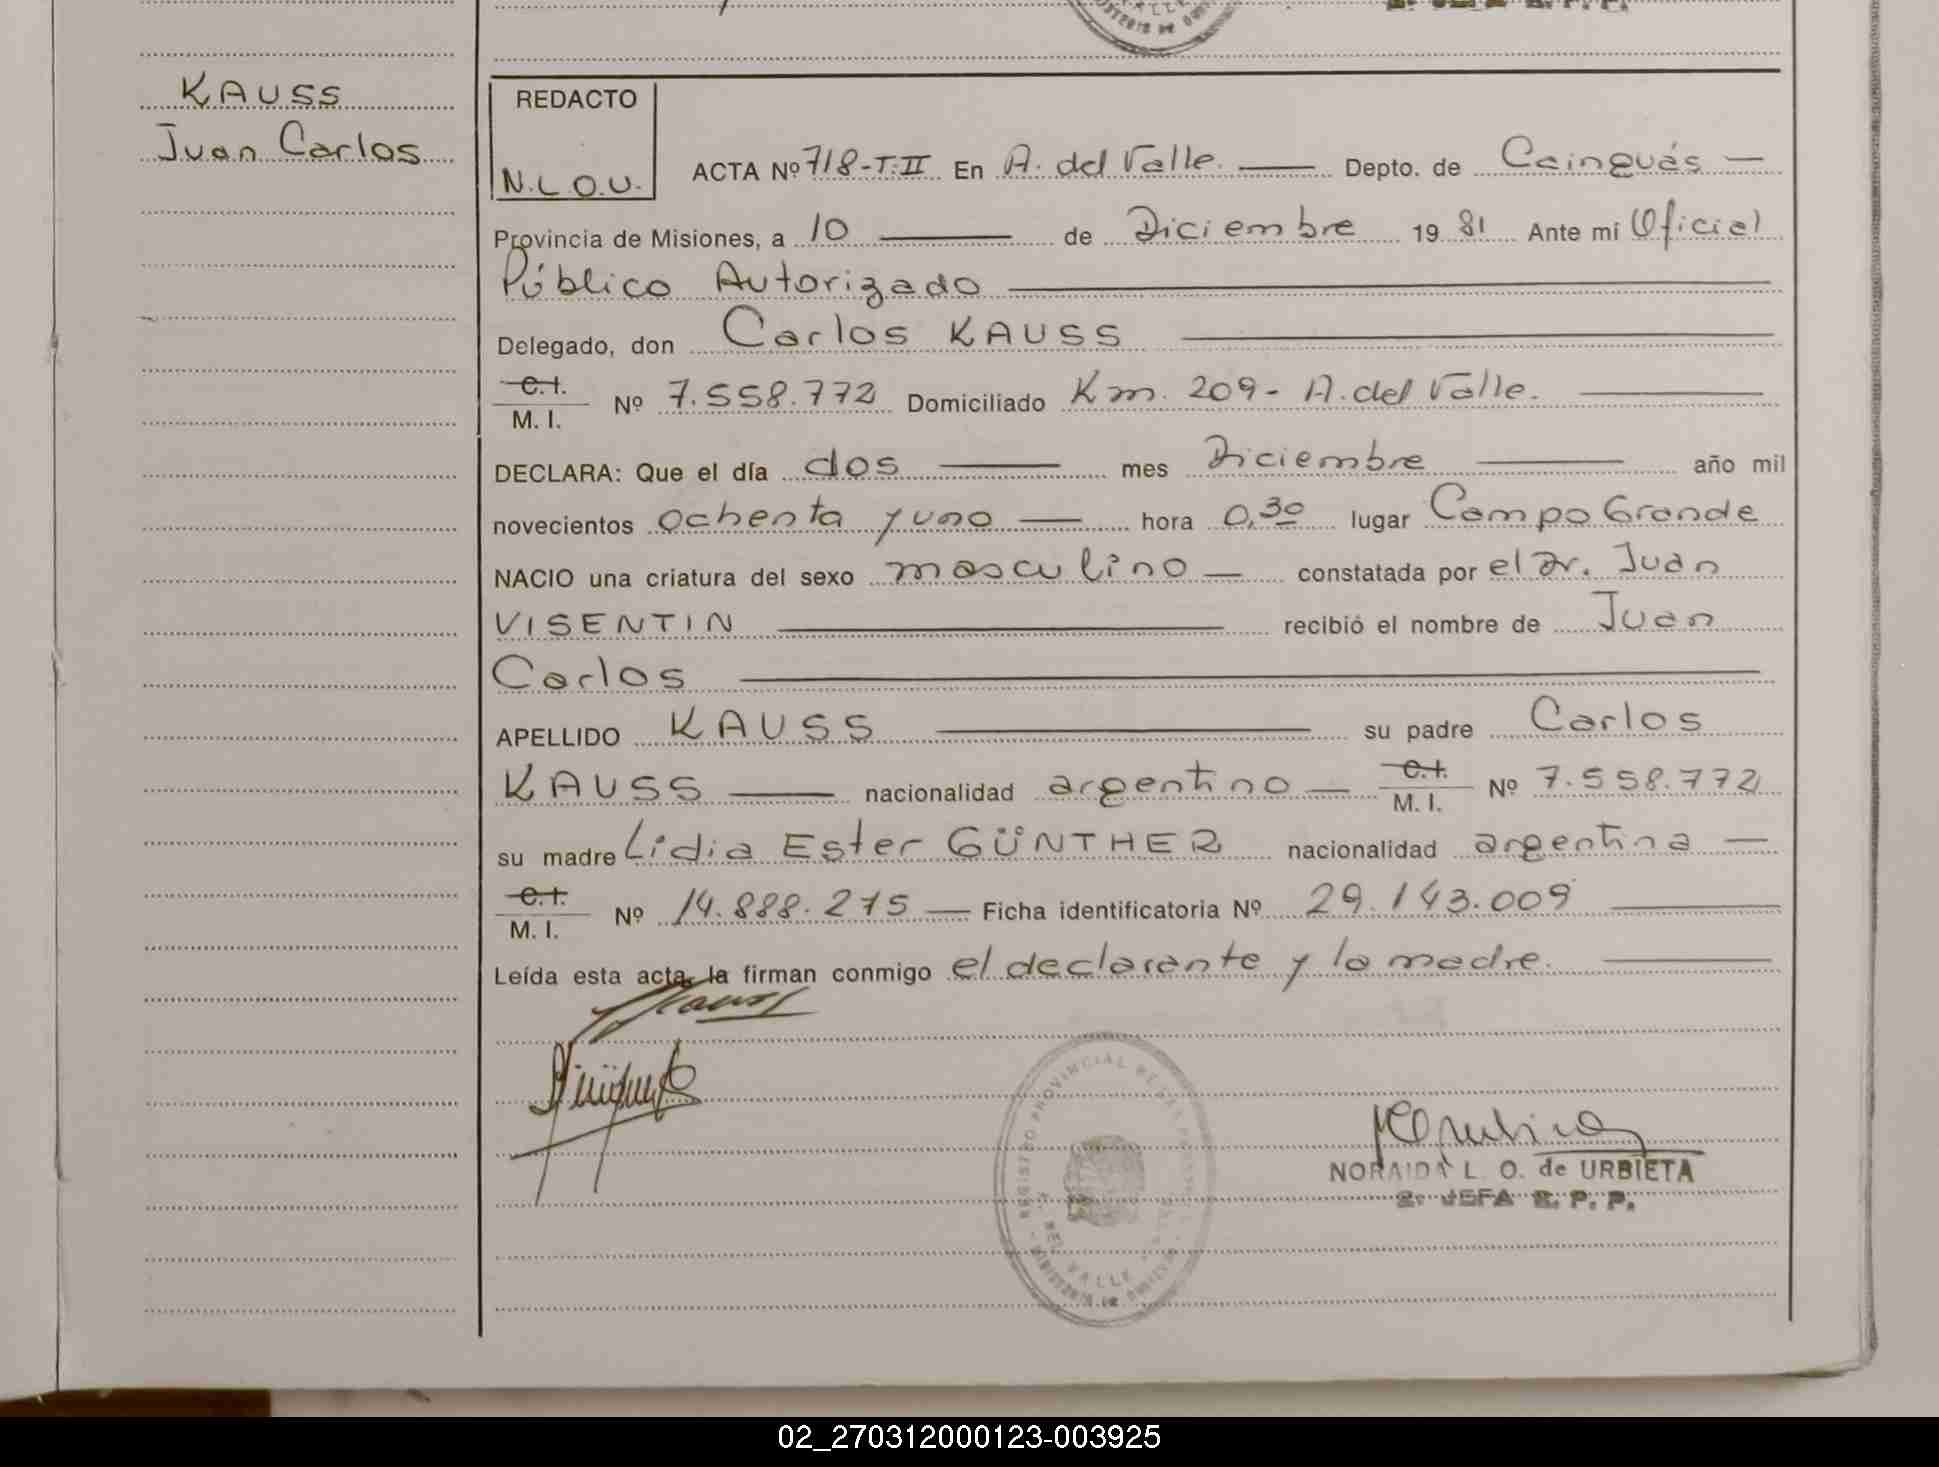 KAUSS
Juan Carlos
REDACTO
N.L.O.U.
ACTA Nº 718-T.II En A. del Valle. Depto. de Cainguás
Provincia de Misiones, a 10 de Diciembre 19 81 Ante mí Oficial
Público Autorizado
Delegado, don Carlos KAUSS
C.I.
M. I. Nº 7.558.772 Domiciliado Km. 209- A. del Valle.
DECLARA: Que el día dos mes Diciembre año mil
novecientos ochenta y uno hora 0,30 lugar Campo Grande
NACIO una criatura del sexo masculino constatada por el Dr. Juan
VISENTIN recibió el nombre de Juan
Carlos
APELLIDO KAUSS su padre Carlos
KAUSS nacionalidad argentino C.I. M. I. Nº 7.558.772
su madre Lidia Ester GÜNTHER nacionalidad argentina
C.I.
M. I. Nº 14.888.275 Ficha identificatoria Nº 29.143.009
Leída esta acta, la firman conmigo el declarante y la madre.
Kauss
REGISTRO PROVINCIAL DE LAS PERSONAS
DEL VALLE
NORAIDA L. O. de URBIETA
2º JEFA R. P. P.
02_270312000123-003925